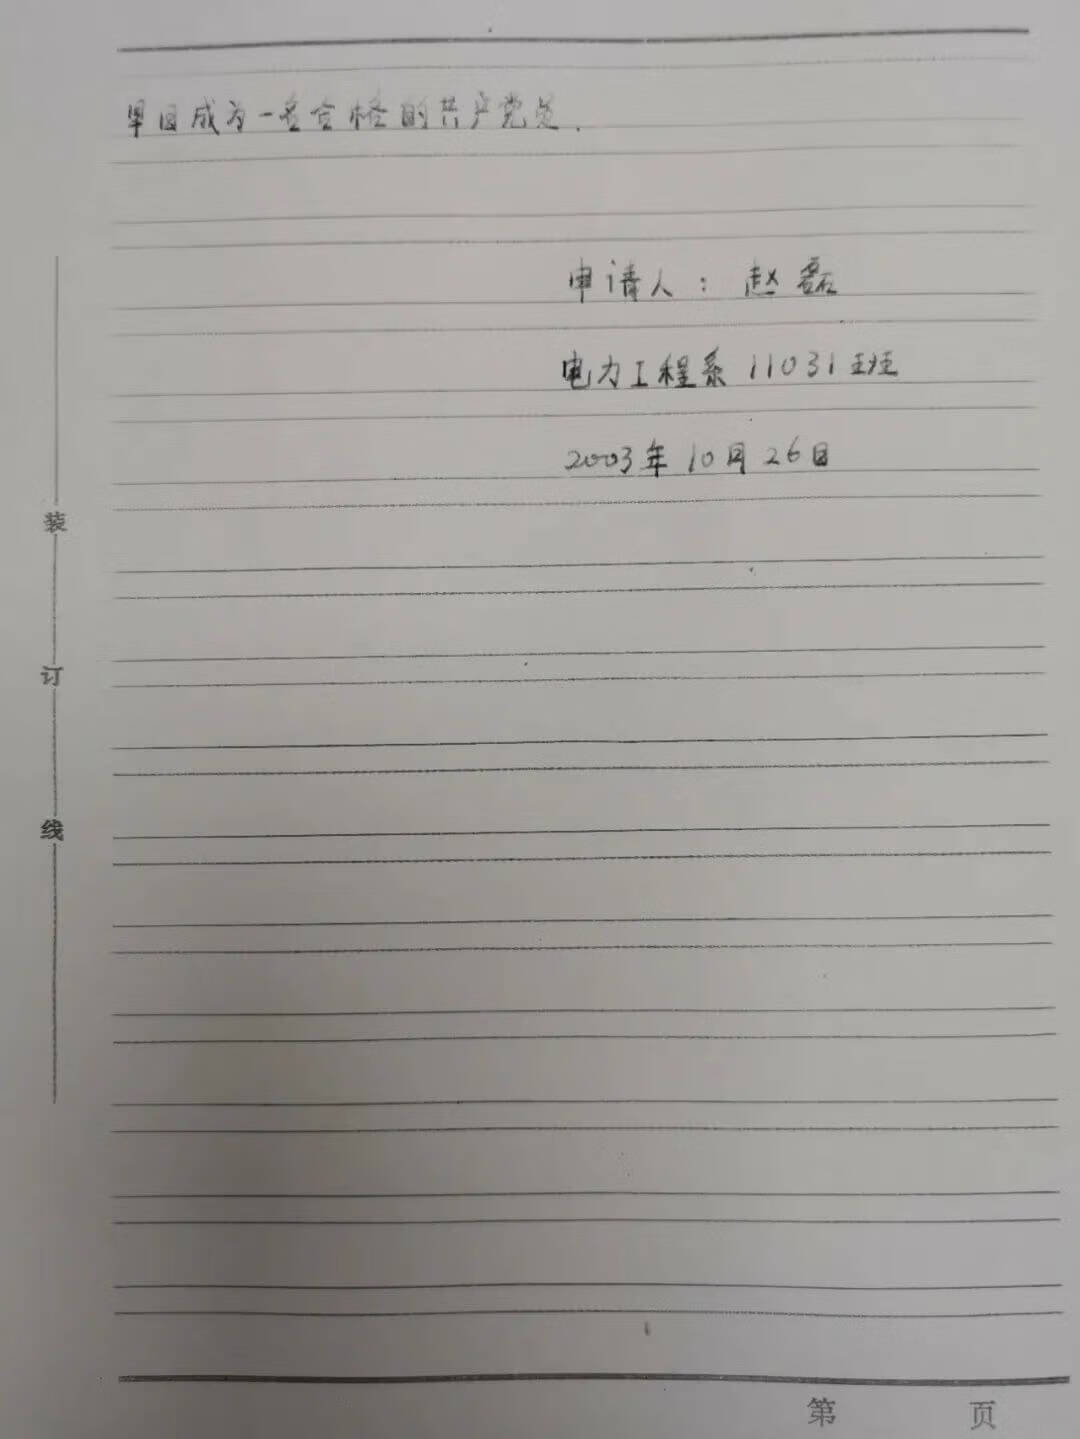 早日成为一名合格的共产党员.
申请人：赵磊
电力工程系11031班
2003年10月26日
装
订
线
第 页